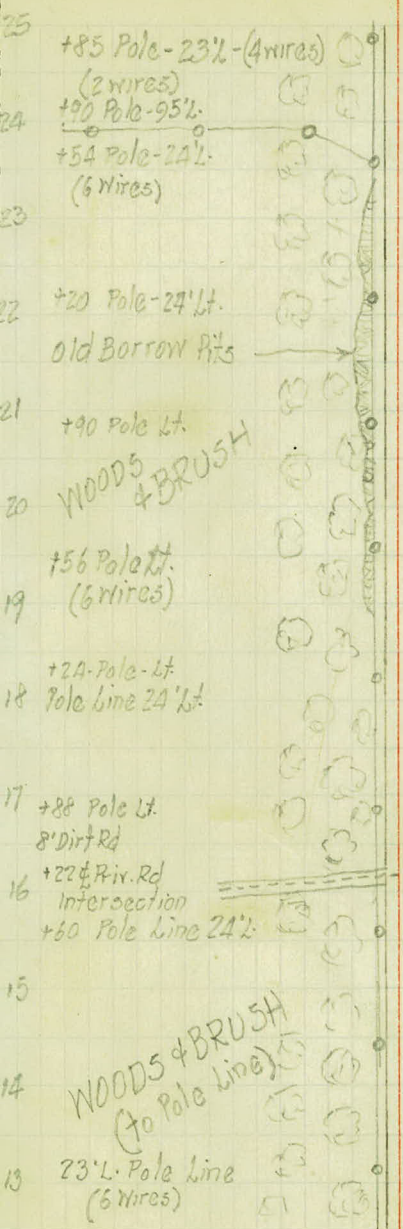 25
+85 Pole-23'L-(4wires)
(2wires)
24 +90 Pole-95'L.
+54 Pole-24'L.
(6 Wires)
23
22 +20 Pole-24'Lt.
Old Borrow Pits
21
+90 Pole Lt.
WOODS
& BRUSH
20
+56 Pole Lt.
19 (6 Wires)
+24-Pole-Lt.
18 Pole Line 24'Lt.
17 +88 Pole Lt.
8' Dirt Rd
16 +22 ₵ Priv. Rd
Intersection
+60 Pole Line 24'L.
15
WOODS & BRUSH
14 (to Pole Line)
13 23'L. Pole Line
(6 Wires)